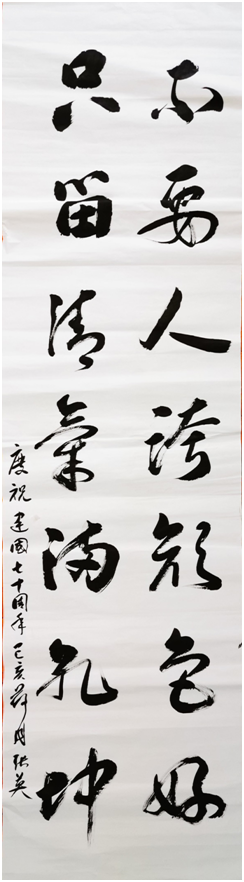 不要人誇顔色好
只留清氣滿乾坤
慶祝建國七十周年己亥荷月張英